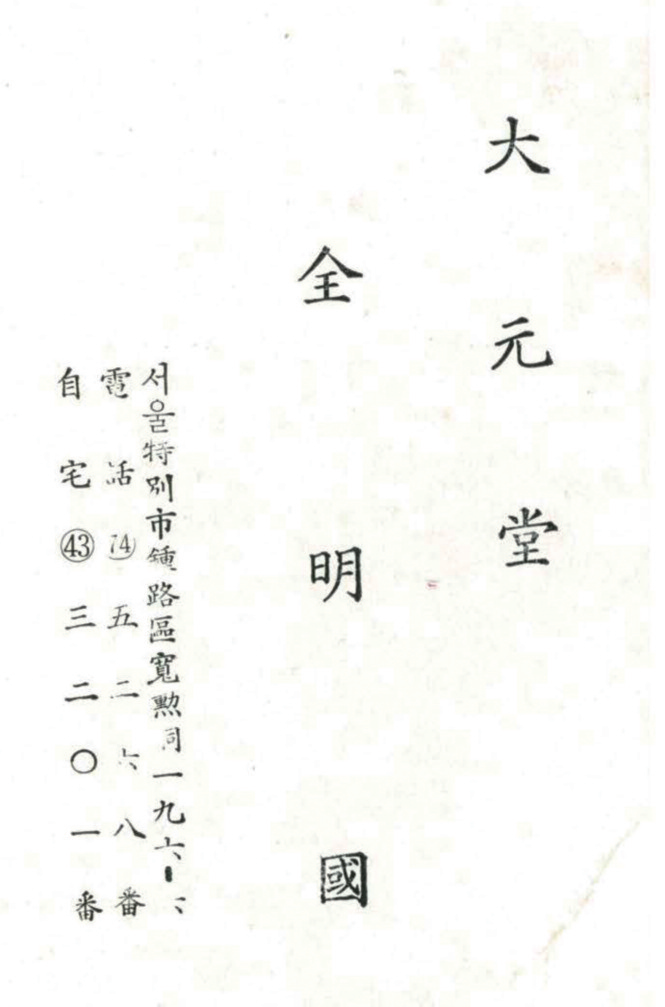 大元堂
全明國
서울特別市鍾路區寬勲洞一九六-
電話(74)五二六八番
自宅㊸三二〇一番